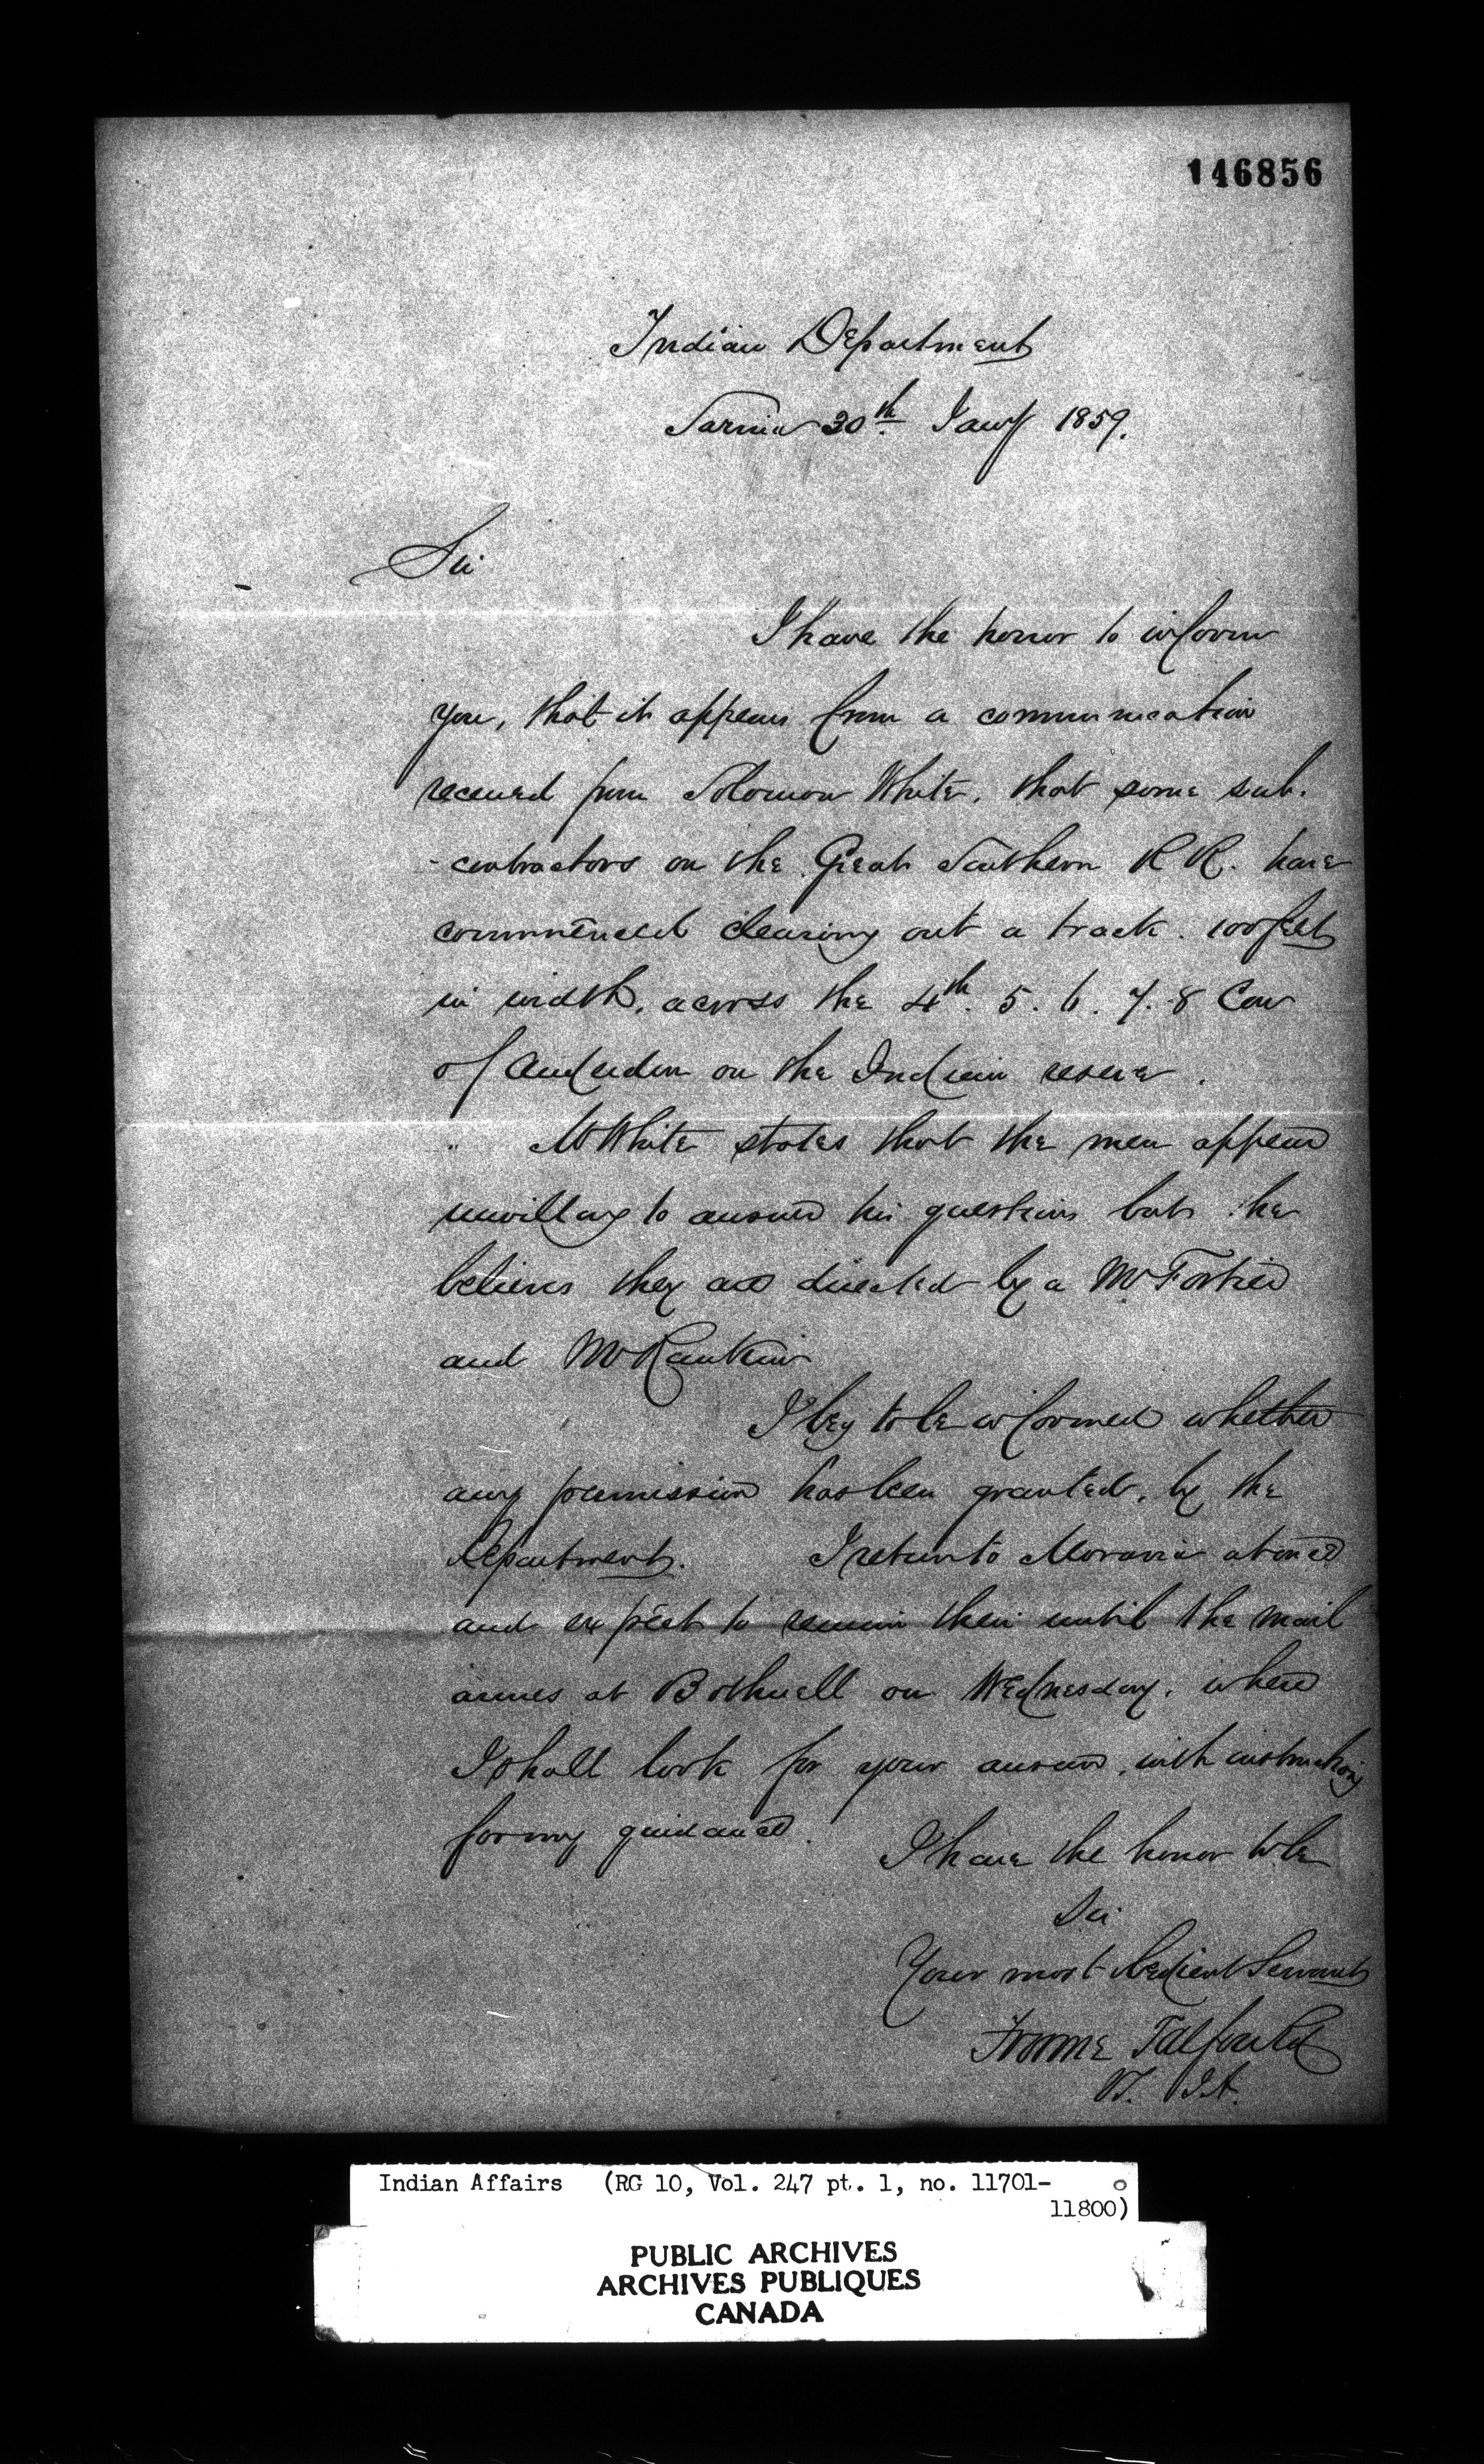 146856
Indian Department
Sarnia 30th Jany 1859.
Sir
I have the honor to inform
you, that it appears from a communication
received from Solomon White, that some sub-
-contractors on the Great Southern R R. have
commenced clearing out a track. 100 feet
in width, across the 4th. 5. 6. 7. 8 Con
of Anderdon on the Indian reserve.
Mr White states that the men appeared
unwilling to answer his questions but he
believes they are directed by a Mr Fortier
and Mr Rankin
I beg to be informed whether
any permission has been granted, by the
Department. I return to Moravian at once
and expect to remain there until the mail
arrives at Bothwell on Wednesday, where
I shall look for your answer, with instructions
for my guidance.
I have the honor to be
Sir
Your most obedient Servant
Froome Talfourd
V. S. I. A.
Indian Affairs (RG 10, Vol. 247 pt. 1, no. 11701-
11800)
PUBLIC ARCHIVES
ARCHIVES PUBLIQUES
CANADA